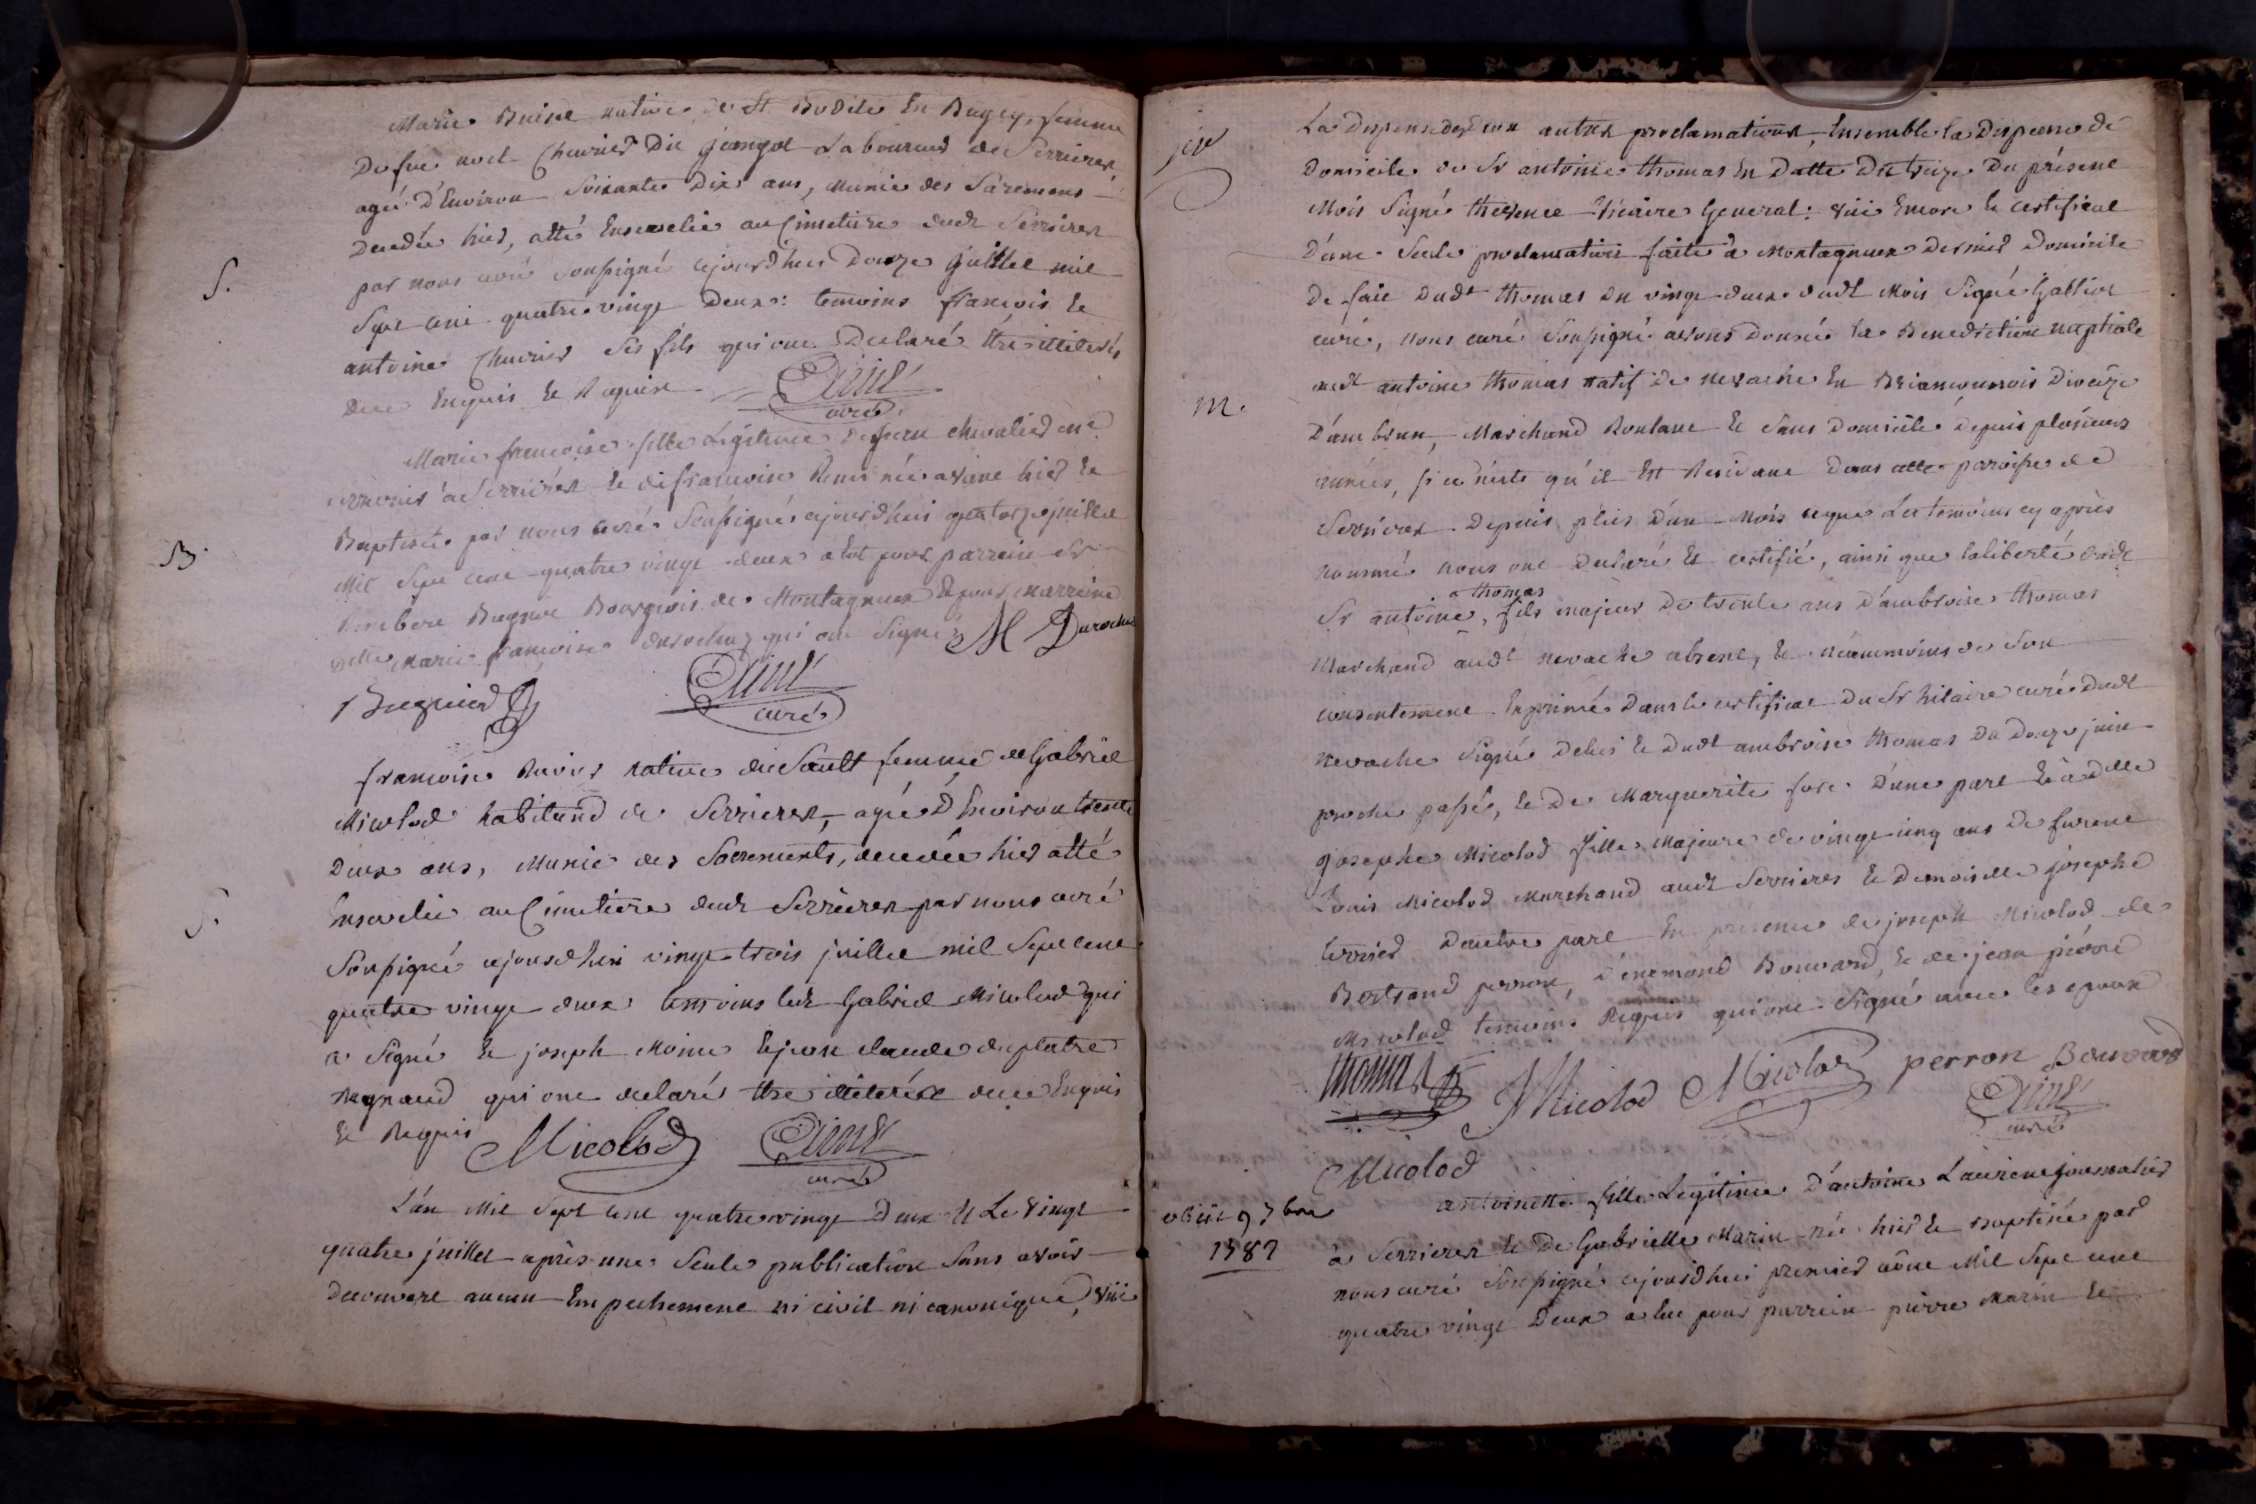 Marie Buine native de St Bodile En Bugey, femme
De feu noel Chevrier Dit jamgot Laboureur de Serrieres
agée d'Environ Soixante Dix ans, Munie des Sacremens
Decedée hier, a été Ensevelie au Cimetiere dudt Serrieres
S.
par nous curé Soussigné cejourdhui Douze juillet mil
Sept cent quatre vingt Deux: temoins françois Et
antoine Chevrier Ses fils qui ont Declaré Etre illiterés
dece Enquis Et Requis
curé
Marie françoise fille Legitime de Chevalier
a Serrieres Et de françoise née avant hier Et
B.
Baptisée par nous curé Soussigné cejourdhui quatorze juillet
Mil Sept cent quatre vingt deux a Eut pour parrein Sr
Bourgeois de Montagnieu Et pour Marreine
delle Marie françoise qui ont Signé M Duroche
curé
françoise Rivier native du Sault femme de Gabriel
Micolod habitand de Serrieres, agée d'Environ trente
Deux ans, Munie des Sacrements, decedée hier a été
Ensevelie au Cimetiere dudt Serrieres par nous curé
S.
Soussigné cejourdhui vingt trois juillet mil Sept cent
quatre vingt deux temoins ledt Gabriel Micolod qui
a Signé Et joseph Moine Et jean claude duplatre
Reynaud qui ont declaré Etre illiterés dece Enquis
Et Requis Micolod
curé
L'an Mil Sept Cent quatre vingt Deux Et Le vingt
quatre juillet après une Seule publication Sans avoir
decouvert aucun Empechement ni civil ni canonique, vüe
La Dispense des Deux autres proclamations, Ensemble la Dispense de
Domicile de Sr antoine thomas En Datte Du treize Du présent
Mois Signé Vicaire General: vüe Encore le certificat
D'une Seule proclamation faite à Montagnieu Dernier Domicile
De fait Dudt thomas Du vingt deux dudt Mois Signé
curé, nous curé Soussigné avons Donnée la Benediction nuptiale
M.
audt antoine thomas natif de nevache En Briançonnois Dioceze
D'ambrun, Marchand Roulant Et Sans Domicile depuis plusieurs
années, si ce n'est qu'il Est Residant dans cette paroisse de
Serrieres Depuis plus D'un Mois ceque Les temoins cy après
nommés nous ont Declaré Et certifié, ainsi que la liberté dudt
thomas
Sr antoine, fils majeur De trente ans D'ambroise thomas
Marchand audt nevache absent, Et néanmoins de Son
consentement Exprimé Dans le certificat Du Sr hilaire curé Dudt
nevache Signé Delui Et Dudt ambroise thomas Du Douze juin
proche passé, Et De Marguerite D'une part Et à delle
josephe Micolod fille Majeure de vingt cinq ans De
Louis Micolod Marchand audt Serrieres Et Demoiselle josephe
terrier D'autre part En présence de joseph Micolod de
Bertrand perron, D'enemond Bouvard, Et de jean piérre
Micolod temoins Requis qui ont Signé avec les epoux
thomas J Micolod Micolod perron Bouvard
curé
Micolod
obiit 9 7bre
1782
antoinette fille Legitime D'antoine Laurent
à Serrieres Et De Gabrielle Marin née hier Et Baptisée par
nous curé Soussigné cejourdhui premier aôut Mil Sept cent
quatre vingt Deux a Eut pour parrein pierre Marin Et